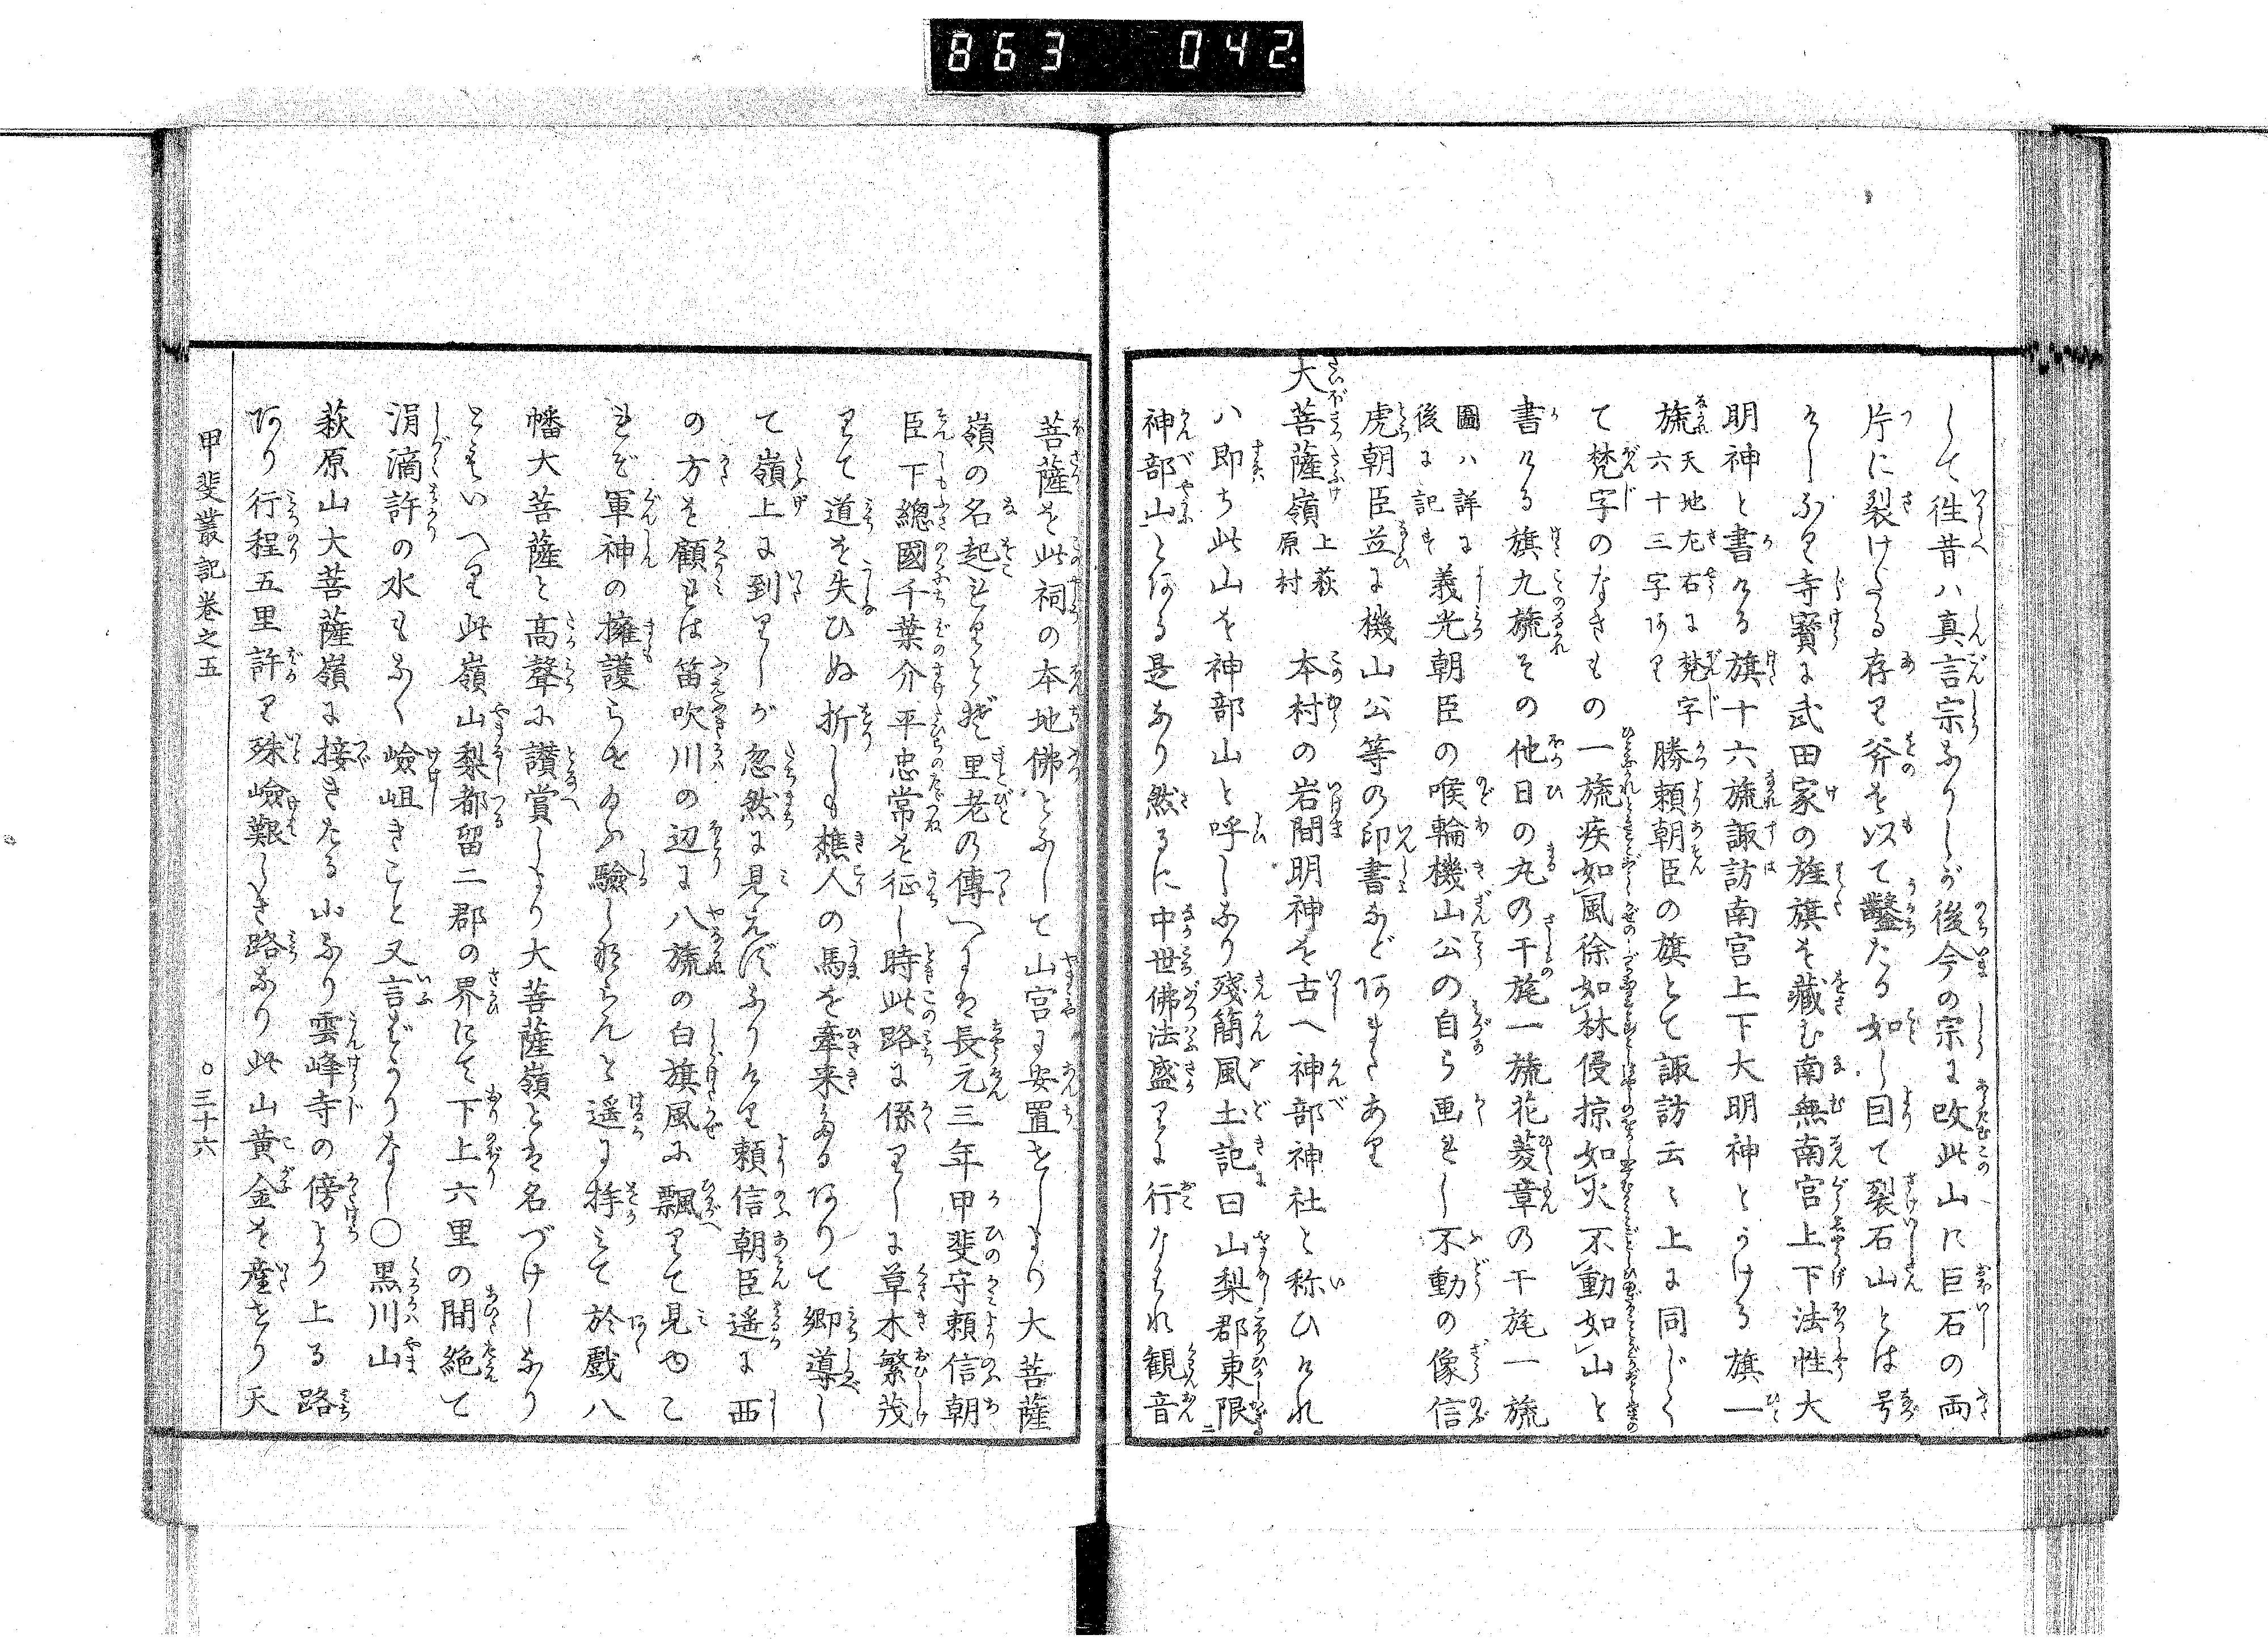 863 042.
して徃昔ハ真言宗なりしが後今の宗に改此山に巨石の両
片に裂けたる存り斧を以て鑿たる如し因て裂石山とは号
けしなり寺寳に武田家の旌旗を藏む南無南宮上下法性大
明神と書ける旗十六旒諏訪南宮上下大明神とかける旗一
旒天地左右に梵字六十三字あり勝頼朝臣の旗とて諏訪云〻上に同じく
て梵字のなきもの一旒疾如風徐如林侵掠如火不動如山と
書ける旗九旒その他日の丸の干旄一旒花菱章の干旄一旒
圖ハ詳に後に記す義光朝臣の喉輪機山公の自ら画れし不動の像信
虎朝臣並に機山公等の印書など あまたあり
大菩薩嶺上萩原村 本村の岩間明神を古へ神部神社と称ひけれ
ハ即ち此山を神部山と呼しなり殘簡風土記曰山梨郡東限
神部山とある是なり然るに中世佛法盛りに行なはれ観音
菩薩を此祠の本地佛となして山宮に安置せしより大菩薩
嶺の名起れりとぞ里老の傳へには長元三年甲斐守頼信朝
臣下總國千葉介平忠常を征し時此路に係りしに草木繁茂
りて道を失ひぬ折しも樵人の馬を牽来るありて郷導し
て嶺上に到りしが忽然に見えずなりけり頼信朝臣遥に西
の方を顧れは笛吹川の辺に八旒の白旗風に飄りて見ゆこ
れぞ軍神の擁護らせ給ふ驗しならんと遥に拝みて於戯八
幡大菩薩と高聲に讃賞しより大菩薩嶺とは名づけしなり
ともいへり此嶺山梨都留二郡の界にて下上六里の間絶て
涓滴許の水もなく嶮岨きこと又言ばかりなし〇黒川山
萩原山大菩薩嶺に接きたる山なり雲峰寺の傍より上る路
あり行程五里許り殊嶮艱しき路なり此山黄金を産せり天
甲斐叢記巻之五 〇三十六